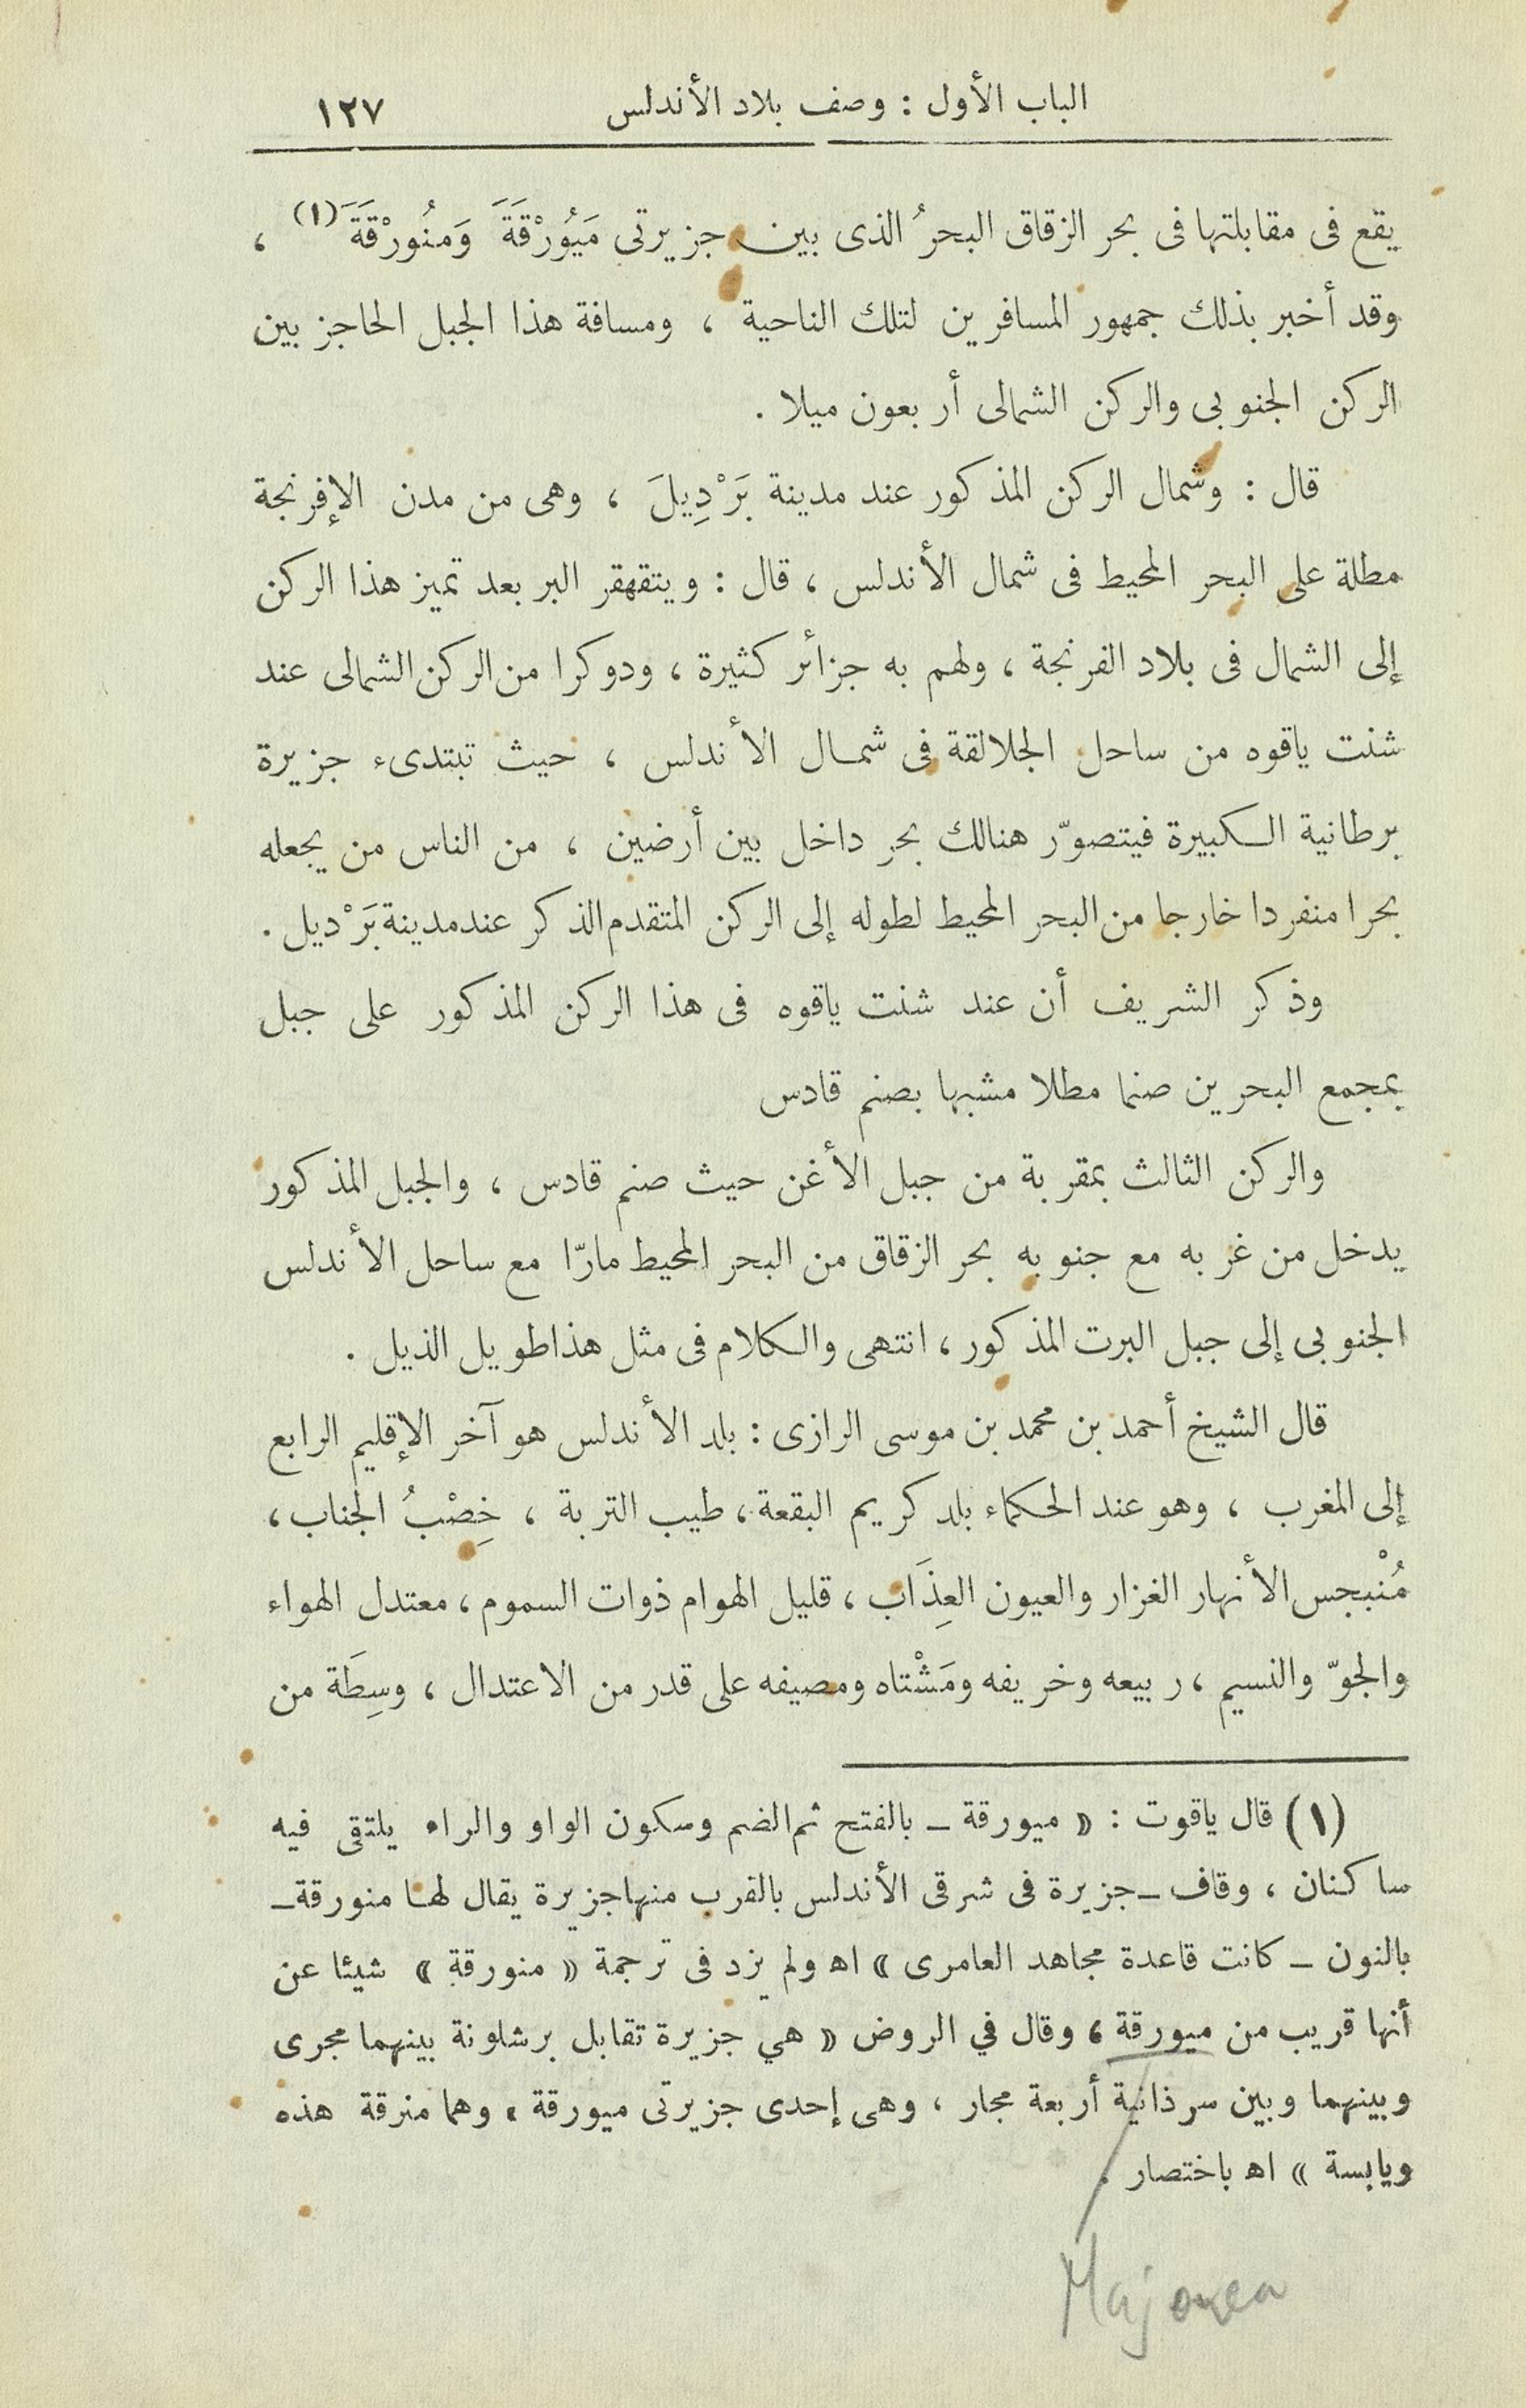 الباب الأول : وصف بلاد الأندلس ١٢٧
يقع فى مقابلتها فى بحر الزقاق البحرُ الذى بين جزيرتى مَيُورْقَةَ وَمنُورْقَةَ (١) ،
وقد أخبر بذلك جمهور المسافرين لتلك الناحية ، ومسافة هذا الجبل الحاجز بين
الركن الجنوبى والركن الشمالى أربعون ميلا .
قال : وشمال الركن المذكور عند مدينة بَرْدِيلَ ، وهى من مدن الإفرنجة
مطلة على البحر المحيط فى شمال الأندلس ، قال : ويتقهقر البر بعد تميز هذا الركن
إلى الشمال فى بلاد الفرنجة ، ولهم به جزائر كثيرة ، ودوكرا من الركن الشمالى عند
شنت ياقوه من ساحل الجلالقة فى شمال الأندلس ، حيث تبتدىء جزيرة
برطانية الكبيرة فيتصوّر هنالك بحر داخل بين أرضين ، من الناس من يجعله
بحرا منفردا خارجا من البحر المحيط لطوله إلى الركن المتقدم الذكر عند مدينة بَرْديل .
وذكر الشريف أن عند شنت ياقوه فى هذا الركن المذكور على جبل
بمجمع البحرين صنما مطلا مشبها بصنم قادس
والركن الثالث بمقربة من جبل الأغن حيث صنم قادس ، والجبل المذكور
يدخل من غربه مع جنوبه بحر الزقاق من البحر المحيط مارّا مع ساحل الأندلس
الجنوبى إلى جبل البرت المذكور ، انتهى والكلام فى مثل هذا طويل الذيل .
قال الشيخ أحمد بن محمد بن موسى الرازى : بلد الأندلس هو آخر الإقليم الرابع
إلى المغرب ، وهو عند الحكماء بلد كريم البقعة ، طيب التربة ، خِصْبُ الجناب ،
مُنْبجس الأنهار الغزار والعيون العِذَاب ، قليل الهوام ذوات السموم ، معتدل الهواء
والجوّ والنسيم ، ربيعه وخريفه ومَشْتاه ومصيفه على قدر من الاعتدال ، وسِطَة من
(١) قال ياقوت : « ميورقة ــ بالفتح ثم الضم وسكون الواو والراء يلتقى فيه
ساكنان ، وقاف ــ جزيرة فى شرقى الأندلس بالقرب منها جزيرة يقال لها منورقة ــ
بالنون ــ كانت قاعدة مجاهد العامرى » اه ولم يزد فى ترجمة « منورقة » شيئا عن
أنها قريب من ميورقة ، وقال في الروض « هي جزيرة تقابل برشلونة بينهما مجرى
وبينهما وبين سرذانية أربعة مجار ، وهى إحدى جزيرتى ميورقة ، وهما منرقة هذه
ويابسة » اه باختصار .
Majorca